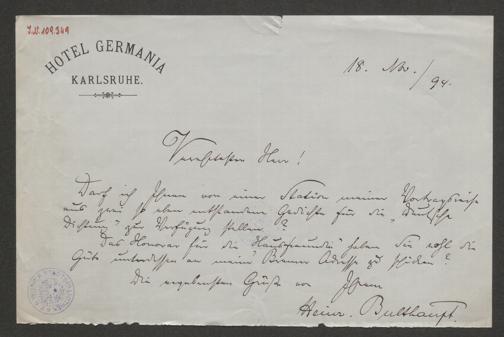 J.N. 109.349
HOTEL GERMANIA
KARLSRUHE.
18. Nov./94.
Verehrtester Herr!
Darf ich Ihnen von einer Station meiner Vortragsreise
aus zwei so eben entstandene Gedichte für die „Deutsche
Dichtung" zur Verfügung stellen?
Das Honorar für die „Hausfreunde" haben Sie wohl die
Güte unterdessen an meine Bremer Adresse zu schicken?
Die ergebensten Grüße von Ihrem
Heinr. Bulthaupt.